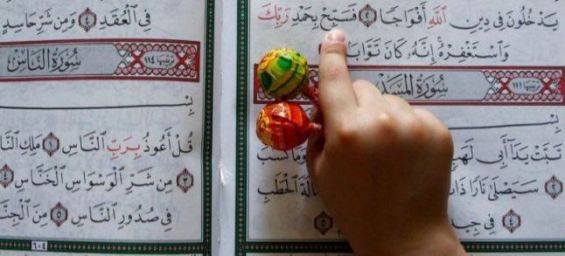 يَدْخُلُونَ فِي دِينِ ٱللَّهِ أَفْوَاجًا ٢ فَسَبِّحْ بِحَمْدِ رَبِّكَ
وَٱسْتَغْفِرْهُ إِنَّهُۥ كَانَ تَوَّابَا
سُورَةُ المَسَدِ ترتيبها ١١١
بِسْـ
تَبَّتْ يَدَآ أَبِي لَهَبٍ وَمَا كَسَبَ
٢ سَيَصْلَىٰ نَارًا ذَاتَ ٱلْحَطَبِ
٤ فِي جِيدِ ٥
فِي ٱلْعُقَدِ ٤ وَمِن شَرِّ حَاسِدٍ
سُورَةُ النَّاسِ ترتيبها ١١٤
بِسْـ
قُلْ أَعُوذُ بِرَبِّ ٱلنَّاسِ ١ مَلِكِ ٱلنَّا
مِن شَرِّ ٱلْوَسْوَاسِ ٱلْخَنَّاسِ ٤
فِي صُدُورِ ٱلنَّاسِ ٥ مِنَ ٱلْجِنَّ
٦٠٤